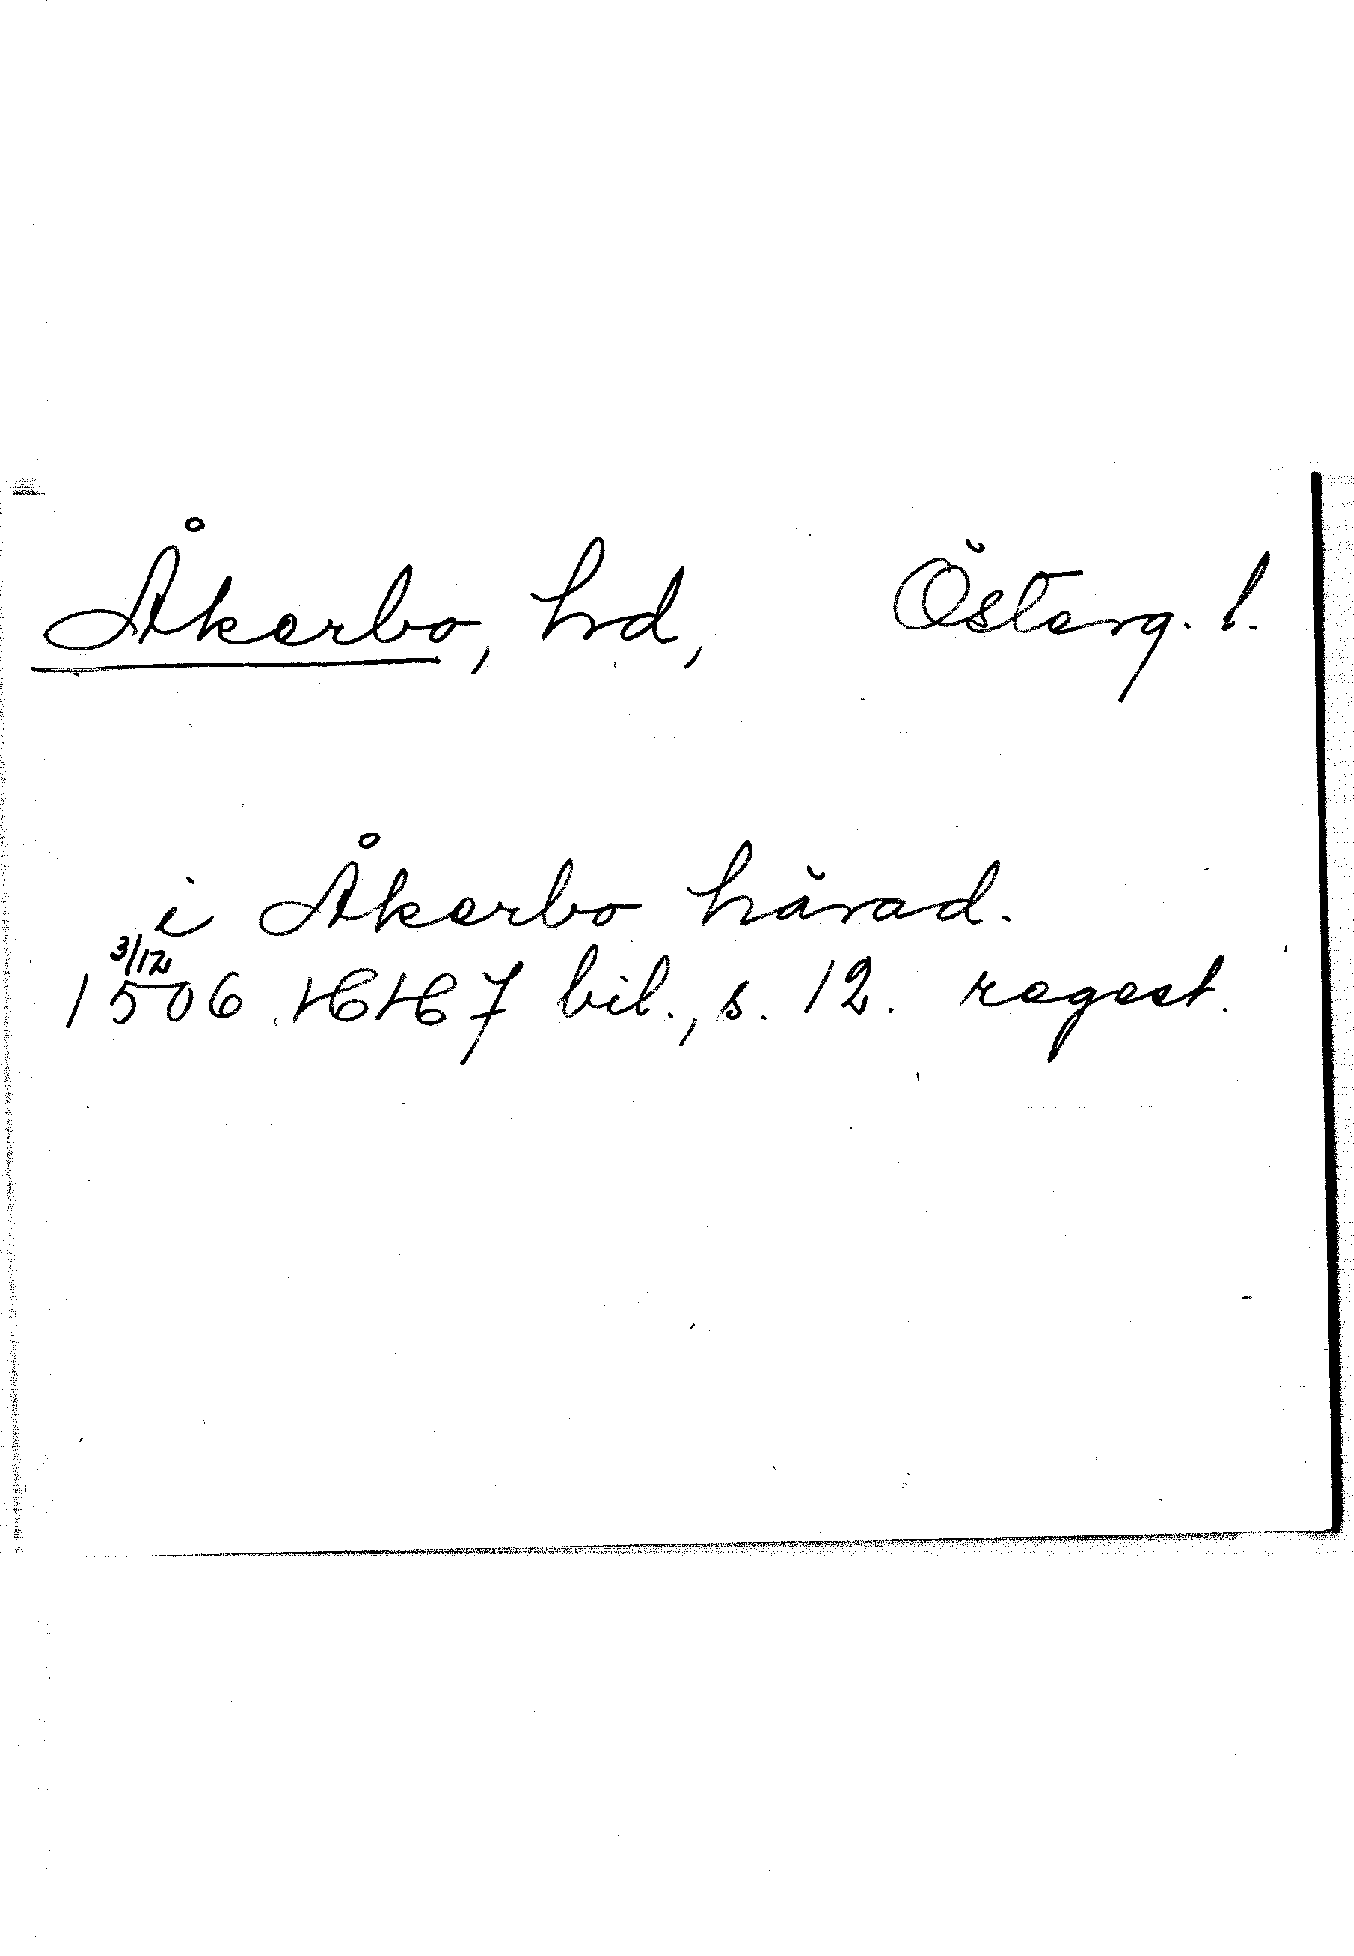 Åkerbo, hrd, Österg. l.
i Åkerbo härad.
3/12
1506 HH 7 bil., s. 12. regest.